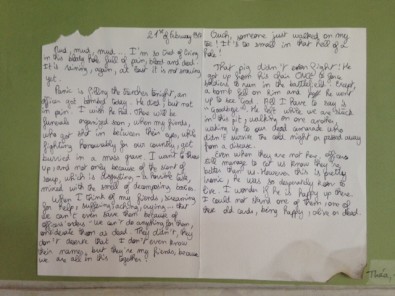 21st of February 1916
Mud, mud, mud... I'm so sick of living
in this bloody hole full of pain, blood and dead!
It is raining, again, at least it is not snowing
yet.
Panic is filling the trenches tonight, an
officer got bombed today. He died, but not
in pain. I wish he had. There will be
funerals organized soon, when my friends,
who got shot in between their eyes, while
fighting honorably for our country, get
burried in a mass grave. I want to throw
up, and not only because of the scent of
soup, which is disgusting - a horrible taste,
mixed with the smell of decomposing bodies.
When I think of my friends, screaming
for help, suffering, aching, crying - that
we can't even save them because of
officers' orders - we can't do anything for them,
and declare them as dead. They didn't, they
don't deserve that. I don't even know
their names, but they're my friends, because
we are all in this together!
Ouch, someone just walked on my
toe! It's so small in that hell of a
hole!
That pig didn't even fight! He
got up from his chair ONCE to give
soldiers to ruin on the battlefield. Except,
a bomb fell on him and
up to see God. All I have to say is
a Goodbye. He left while we are stuck
in this pit, walking on one another,
waking up to our dead comrade who
didn't survive the cold night or passed away
from a disease.
Even when they are not her officers
still manage to let us know they are
better than us. However this is pretty
ironic, he was so desperately keen to
live. I wonder if he is happy up there.
I could not stand one of them, one of
these old cads, being happy, alive or dead.
Théa,